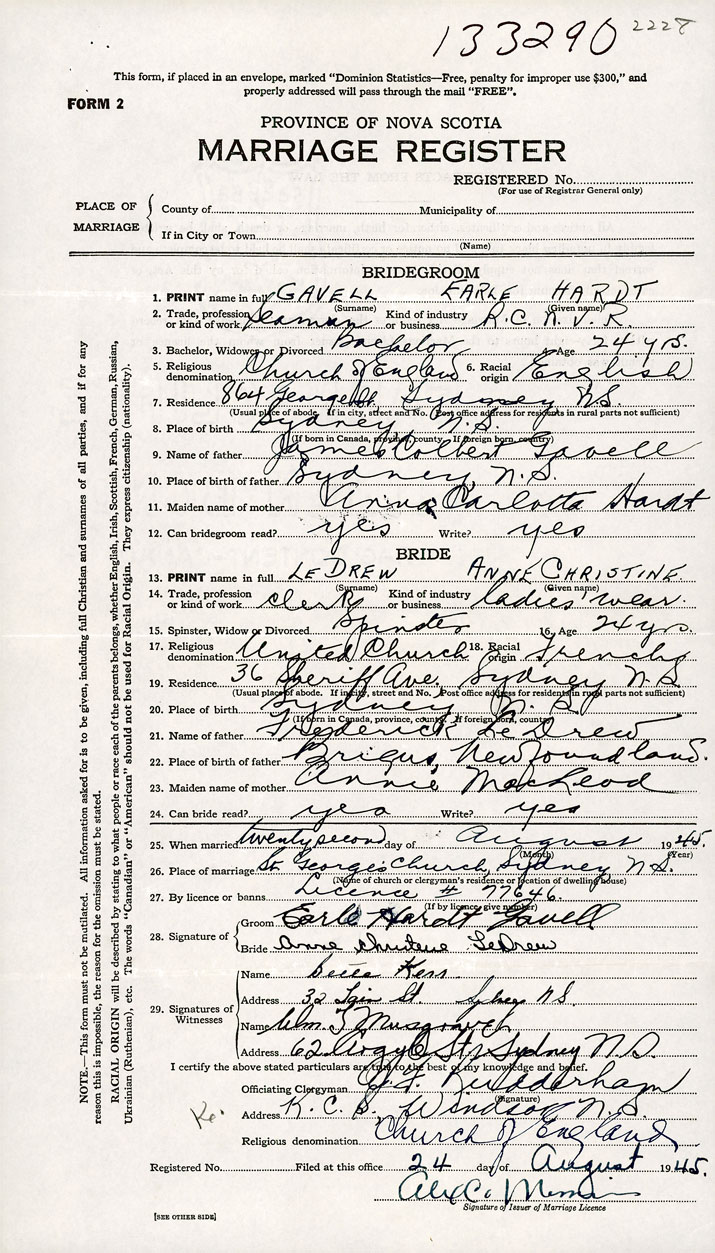 133290 2228
This form, if placed in an envelope, marked "Dominion Statistics—Free, penalty for improper use $300," and
properly addressed will pass through the mail "FREE".
FORM 2
PROVINCE OF NOVA SCOTIA
MARRIAGE REGISTER
REGISTERED No.
(For use of Registrar General only)
PLACE OF MARRIAGE
County of Municipality of
If in City or Town
(Name)
BRIDEGROOM
1. PRINT name in full GAVELL EARLE HARDT
(Surname) (Given name)
2. Trade, profession or kind of work Seaman Kind of industry or business R.C.N.V.R.
3. Bachelor, Widower or Divorced Bachelor Age 24 yrs.
5. Religious denomination Church of England 6. Racial origin English
7. Residence 864 George St. Sydney N.S.
(Usual place of abode. If in city, street and No. Post office address for residents in rural parts not sufficient)
8. Place of birth Sydney N.S.
(If born in Canada, province, county. If foreign born, country)
9. Name of father James Colbert Gavell
10. Place of birth of father Sydney, N.S.
11. Maiden name of mother Anna Carlotta Hardt
12. Can bridegroom read? yes Write? yes
BRIDE
13. PRINT name in full LEDREW ANNE CHRISTINE
(Surname) (Given name)
14. Trade, profession or kind of work clerk Kind of industry or business ladies' wear.
15. Spinster, Widow or Divorced Spinster 16. Age 24 yrs.
17. Religious denomination United Church 18. Racial origin French
19. Residence 36 Sheriff Ave, Sydney N.S.
(Usual place of abode. If in city, street and No. Post office address for residents in rural parts not sufficient)
20. Place of birth Sydney N.S.
(If born in Canada, province, county. If foreign born, country)
21. Name of father Frederick LeDrew
22. Place of birth of father Brigus, Newfoundland.
23. Maiden name of mother Annie MacLeod
24. Can bride read? yes Write? yes
25. When married twenty second day of August 1945.
(Month) (Year)
26. Place of marriage St. George's Church, Sydney N.S.
(Name of church or clergyman's residence or location of dwelling house)
27. By licence or banns Licence # 77646.
(If by licence, give number)
28. Signature of
Groom Earle Hardt Gavell
Bride Anne Christine LeDrew
29. Signatures of Witnesses
Name Kerr
Address 32 St. Sydney N.S.
Name Wm. Musgrave
Address 62 Argyle St, Sydney N.S.
I certify the above stated particulars are true to the best of my knowledge and belief.
Officiating Clergyman
(Signature)
Address K.C.S. Windsor N.S.
Religious denomination Church of England
Registered No. Filed at this office 24 day of August 1945.
Alex C.
Signature of Issuer of Marriage Licence
[SEE OTHER SIDE]
NOTE.—This form must not be mutilated. All information asked for is to be given, including full Christian and surnames of all parties, and if for any
reason this is impossible, the reason for the omission must be stated.
RACIAL ORIGIN will be described by stating to what people or race each of the parents belongs, whether English, Irish, Scottish, French, German, Russian,
Ukrainian (Ruthenian), etc. The words "Canadian" or "American" should not be used for Racial Origin. They express citizenship (nationality).